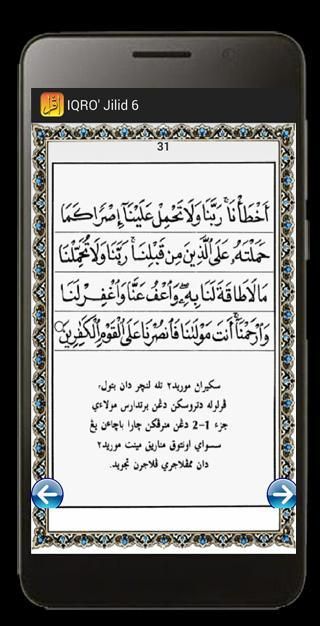 IQRO' Jilid 6
31
أَخْطَأْنَا ۚ رَبَّنَا وَلَا تَحْمِلْ عَلَيْنَآ إِصْرًا كَمَا
حَمَلْتَهُۥ عَلَى الَّذِينَ مِن قَبْلِنَا ۚ رَبَّنَا وَلَا تُحَمِّلْنَا
مَا لَا طَاقَةَ لَنَا بِهِۦ ۖ وَاعْفُ عَنَّا وَاغْفِرْ لَنَا
وَارْحَمْنَا ۚ أَنتَ مَوْلَىٰنَا فَانصُرْنَا عَلَى الْقَوْمِ الْكَٰفِرِينَ
سکيران موريد٢ تله لنچر دان بتول،
ڤرلوله دتروسکن دڠن برتدارس مولاءي
جزء 1-2 دڠن منرڠکن چارا باچاءن يڠ
سسواي اونتوق مناريق مينت موريد٢
دان ممڤلاجري ڤلاجرن تجويد.